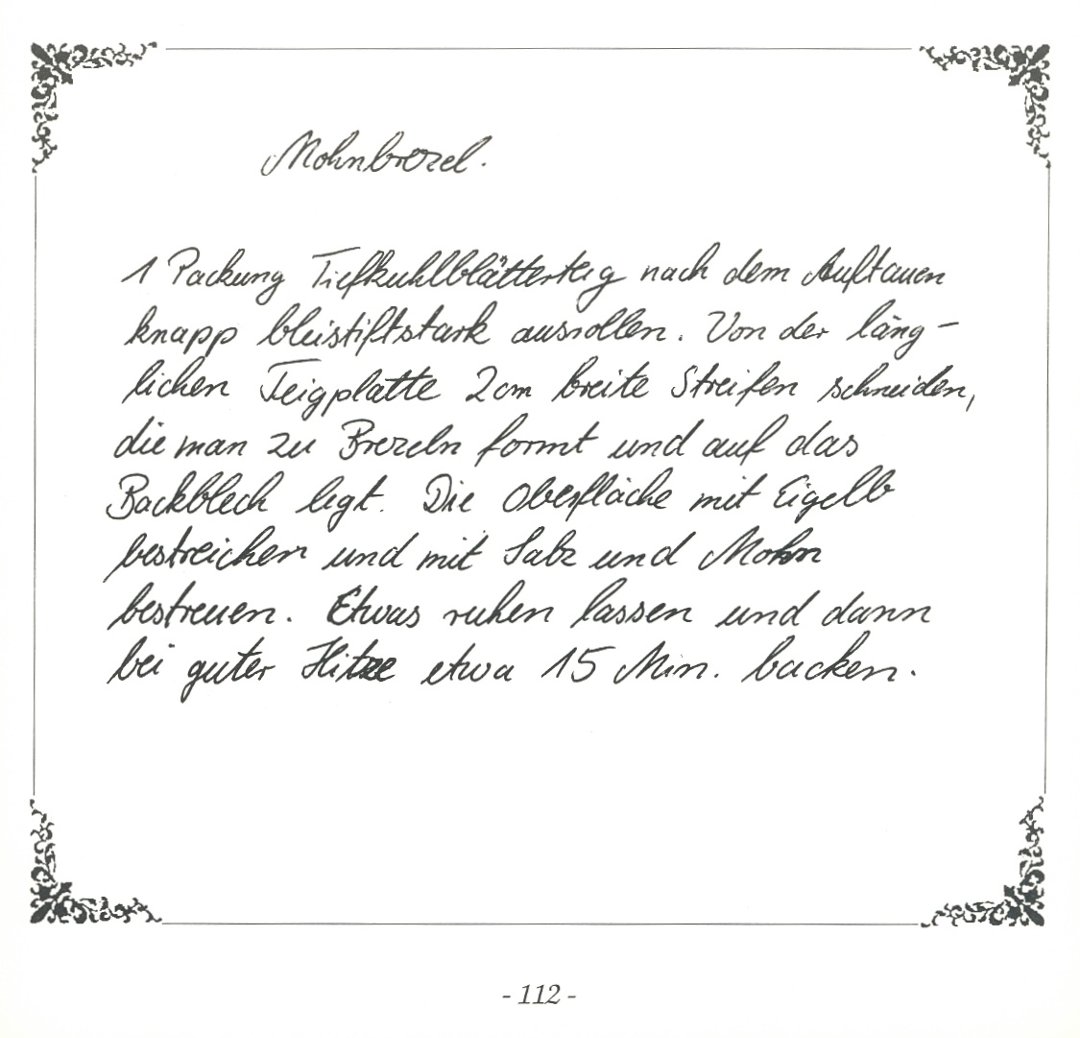 Mohnbrezel.
1 Packung Tiefkuhlblätterteig nach dem Auftauen
knapp bleistiftstark ausrollen. Von der läng-
lichen Teigplatte 2cm breite Streifen schneiden,
die man zu Brezeln formt und auf das
Backblech legt. Die Oberfläche mit Eigelb
bestreichen und mit Salz und Mohn
bestreuen. Etwas ruhen lassen und dann
bei guter Hitze etwa 15 Min. backen.
- 112 -